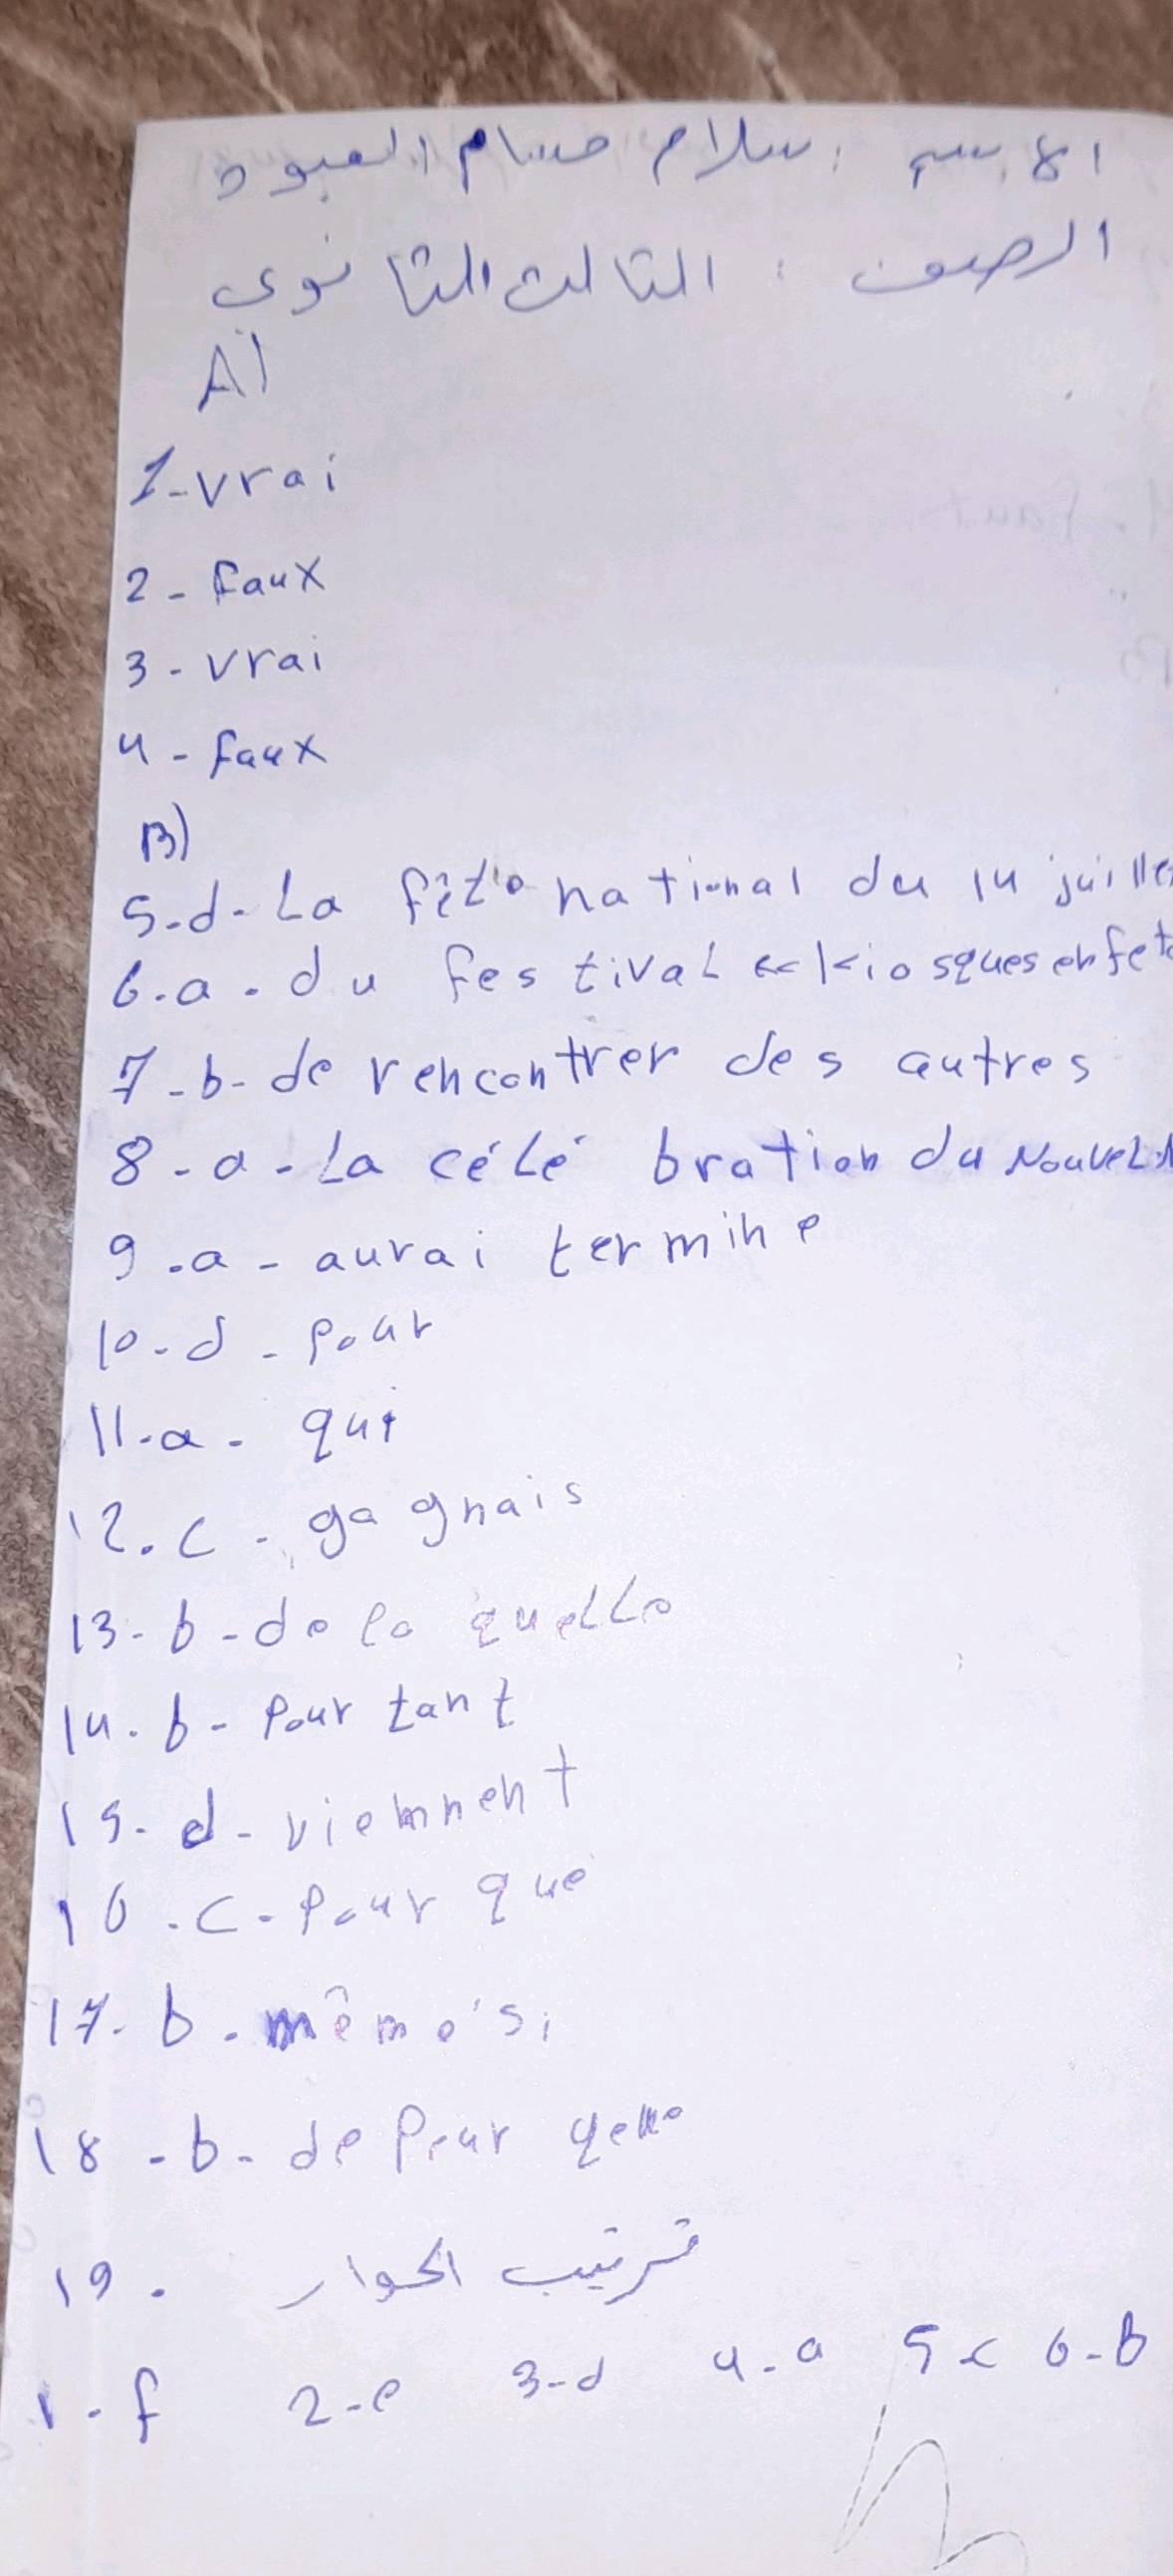 الاسم : سلام حسام العبود
الصف : الثالث الثانوي
A)
1-vrai
2 - faux
3 - vrai
4 - faux
B)
5-d- La fête national du 14 juille
6-a - du festival << kiosques en fet
7-b- de rencontrer des autres
8 - a - La célébration du Nouvel
9 -a - aurai termine
10-d - pour
11-a - qui
12-c - gagnais
13- b - de la quelle
14- b - Pour tant
15- d - viemnent
16 -c- Pour que
17- b - même si
18 - b- de Peur que
19 - ترتيب الحوار
1-f 2-e 3-d 4-a 5 c 6-b